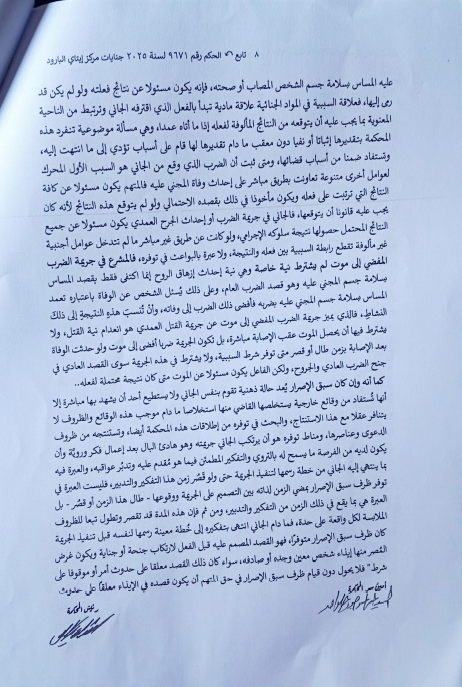 ٨ تابع الحكم رقم ٩٦٧١ لسنة ٢٠٢٥ جنايات مركز إيتاي البارود
عليه المساس بسلامة جسم الشخص المصاب أو صحته، فإنه يكون مسئولا عن نتائج فعلته ولو لم يكن قد
رمى إليها، فعلاقة السببية في المواد الجنائية علاقة مادية تبدأ بالفعل الذي اقترفه الجاني وترتبط من الناحية
المعنوية بما يجب عليه أن يتوقعه من النتائج المألوفة لفعله إذا ما أتاه عمدا، وهي مسألة موضوعية تنفرد هذه
المحكمة بتقديرها إثباتا أو نفيا دون معقب ما دام تقديرها لها قام على أسباب تؤدي إلى ما انتهت إليه،
وتستفاد ضمنا من أسباب قضائها، ومتى ثبت أن الضرب الذي وقع من الجاني هو السبب الأول المحرك
لعوامل أخرى متنوعة تعاونت بطريق مباشر على إحداث وفاة المجني عليه فالمتهم يكون مسئولا عن كافة
النتائج التي ترتبت على فعله ويكون مأخوذا في ذلك بقصده الاحتمالي ولو لم يتوقع هذه النتائج لأنه كان
يجب عليه قانونا أن يتوقعها، فالجاني في جريمة الضرب أو إحداث الجرح العمدي يكون مسئولا عن جميع
النتائج المحتمل حصولها نتيجة سلوكه الإجرامي، ولو كانت عن طريق غير مباشر ما لم تتدخل عوامل أجنبية
غير مألوفة تقطع رابطة السببية بين فعله والنتيجة، ولا عبرة بالبواعث في توفره، فالمشرع في جريمة الضرب
المفضي إلى موت لم يشترط نية خاصة وهي نية إحداث إزهاق الروح إنما اكتفى فقط بقصد المساس
بسلامة جسم المجني عليه وهو قصد الضرب العام، وعلى ذلك يُسئل الشخص عن الوفاة باعتباره تعمد
المساس بسلامة جسم المجني عليه بضربه فأفضى ذلك الضرب إلى وفاته، وأنْ تُنسبَ هذهِ النتيجةِ إلى ذلكَ
النشاطِ، فالذي يميز جريمة الضرب المفضي إلى موت عن جريمة القتل العمدي هو انعدام نية القتل، ولا
يشترط فيها أن يحصل الموت عقب الإصابة مباشرة، بل تكون الجريمة ضربا أفضى إلى موت ولو حدثت الوفاة
بعد الإصابة بزمن طال أو قصر متى توفر شرط السببية، ولا يشترط في هذه الجريمة سوى القصد العادي في
جنح الضرب العادي والجروح، ولكن الفاعل يكون مسئولا عن الموت متى كان نتيجة محتملة لفعله..
كما أنه وإن كان سبق الإصرار يُعد حالة ذهنية تقوم بنفس الجاني ولا يستطيع أحد أن يشهد بها مباشرة إلا
أنها تُستفاد من وقائع خارجية يستخلصها القاضي منها استخلاصا ما دام موجب هذه الوقائع والظروف لا
يتنافر عقلا مع هذا الاستنتاج، والبحث في توفره من إطلاقات هذه المحكمة أيضا، وتستنتجه من ظروف
الدعوى وعناصرها، ومناط توفره هو أن يرتكب الجاني جريمته وهو هادئ البال بعد إعمال فكر ورويَّة وأن
يكون لديه من الفرصة ما يسمح له بالتروي والتفكير المطمئن فيما هو مُقدم عليه وتدبُر عواقبه، والعبرة فيه
بما ينتهي إليه الجاني من خطة رسمها لتنفيذ الجريمة حتى ولو قَصُر زمن هذا التفكير والتدبير، فليست العبرة في
توفر ظرف سبق الإصرار بمضي الزمن لذاته بين التصميم على الجريمة ووقوعها - طال هذا الزمن أو قصُر - بل
العبرة هي بما يقع في ذلك الزمن من التفكير والتدبير، ومن ثم فإن هذه المدة قد تقصر وتطول تبعا للظروف
الملابسة لكل واقعة على حدة، فما دام الجاني انتهى بتفكيره إلى خطة معينة رسمها لنفسه قبل تنفيذ الجريمة
كان ظرف سبق الإصرار متوفرًا، فهو القصد المصمم عليه قبل الفعل لارتكاب جنحة أو جناية ويكون غرض
المُصر منها إيذاء شخص معين وجده أو صادفه، سواء كان ذلك القصد معلقا على حدوث أمر أو موقوفا على
شرط" فلا يحول دون قيام ظرف سبق الإصرار في حق المتهم أن يكون قصده في الإيذاء معلقا على حدوث
رئيس المحكمة